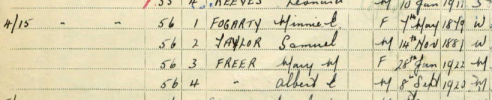 55 4 REEVES Leonard M 10 Jan 1911 S
4/15 " " 56 1 FOGARTY Minnie E F 7th May 1879 W
56 2 TAYLOR Samuel M 14th Nov 1881 W
56 3 FREER Mary M F 28th Jan 1922
56 4 " Albert E M 8th Sept 1920